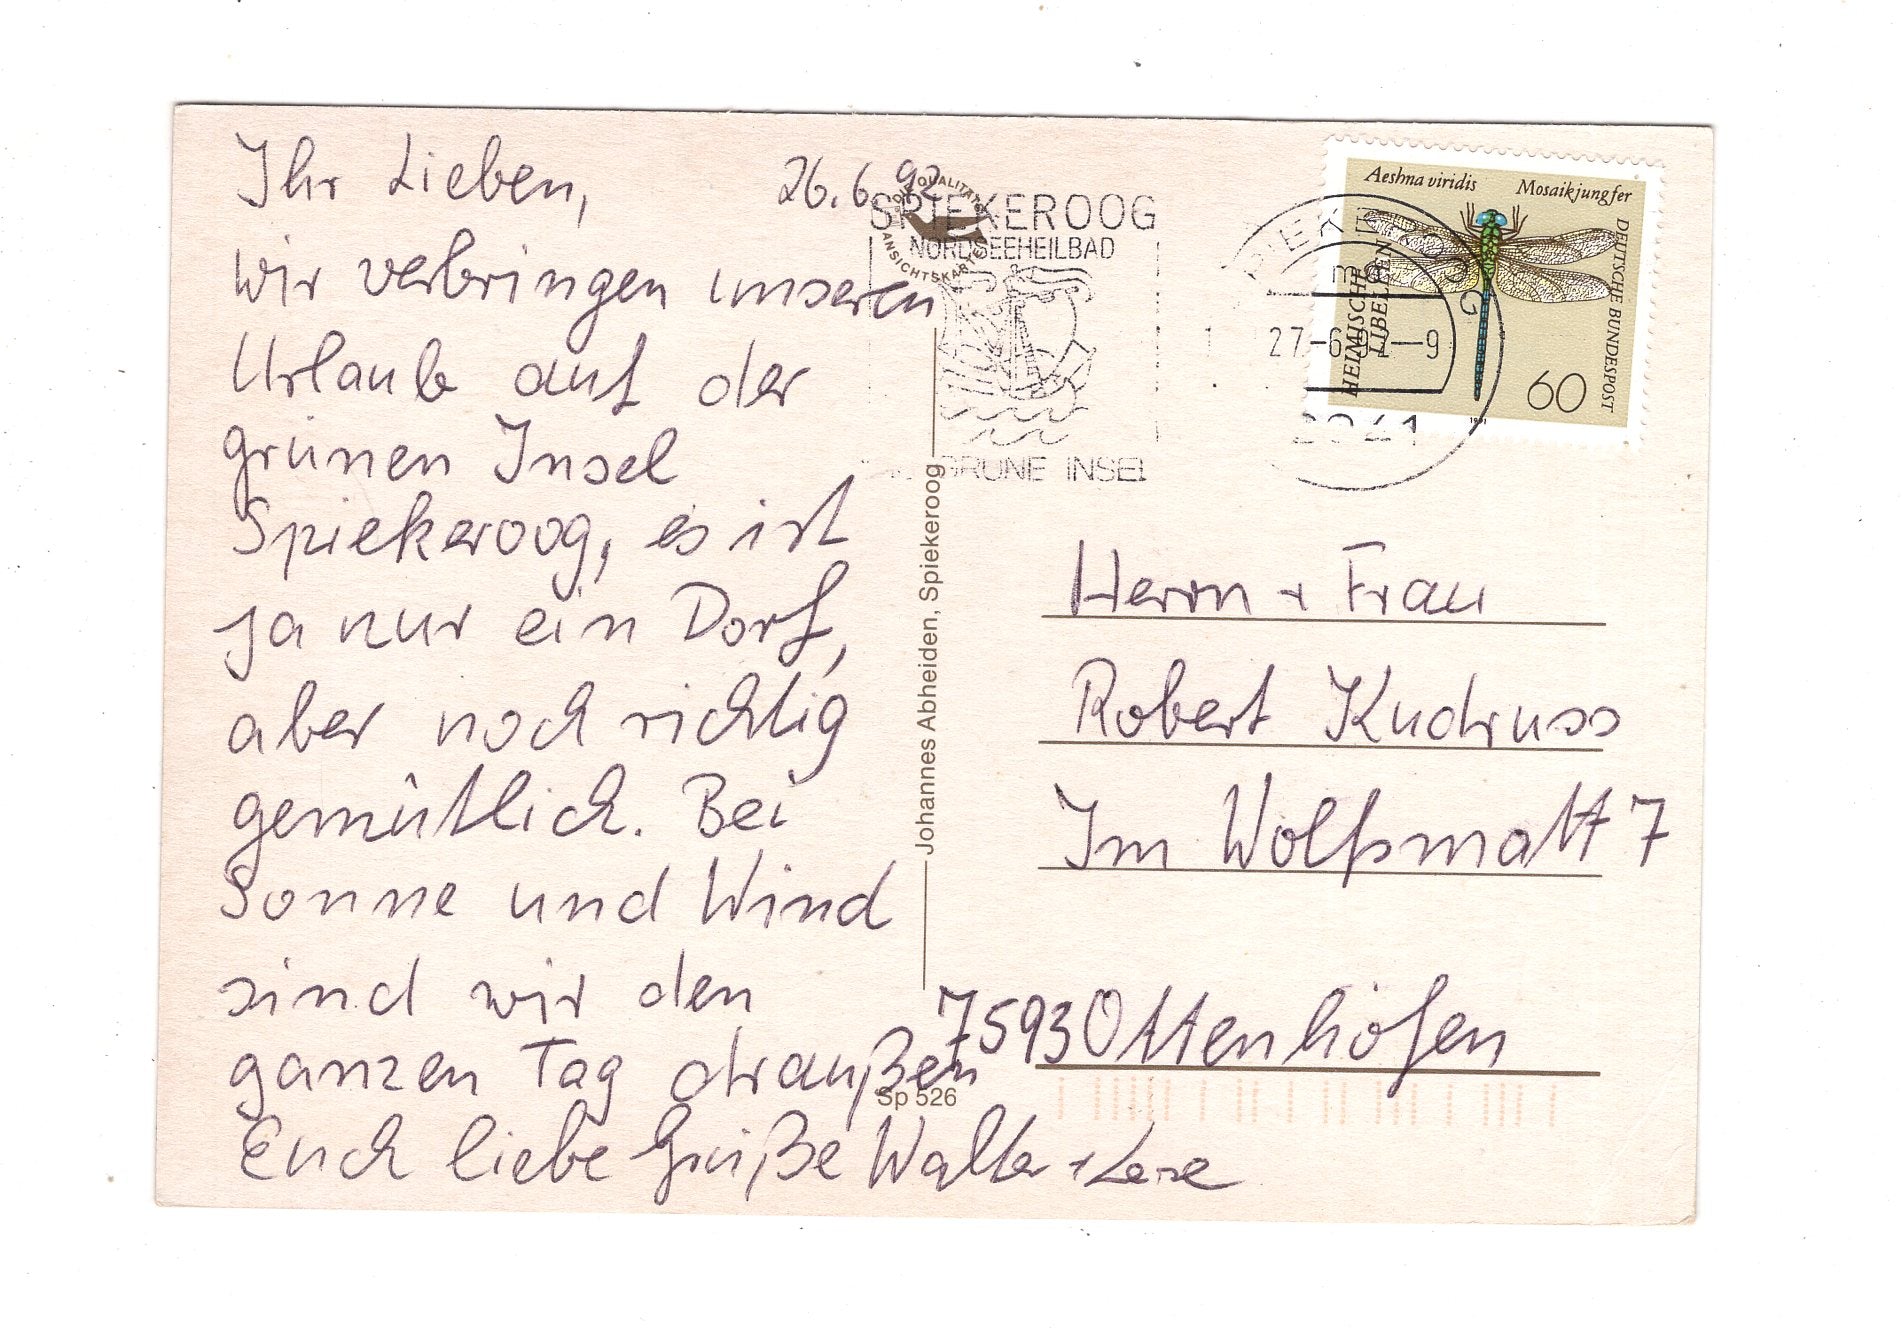 Ihr Lieben, 26.6.92
wir verbringen unseren
Urlaub auf der
grünen Insel
Spiekeroog, es ist
ja nur ein Dorf,
aber noch richtig
gemütlich. Bei
Sonne und Wind
sind wir den
ganzen Tag draußen
Euch liebe Grüße Walter +
SPIEKEROOG
NORDSEEHEILBAD
GRÜNE INSEL
QUALITÄTS
ANSICHTSKARTE
27.-6.92-9
Aeshna viridis Mosaikjungfer
HEIMISCHE
LIBELLEN
DEUTSCHE BUNDESPOST
60
1991
Johannes Abheiden, Spiekeroog
Sp 526
Herrn + Frau
Robert Kudruss
Im Wolfsmatt 7
7593 Ottenhöfen